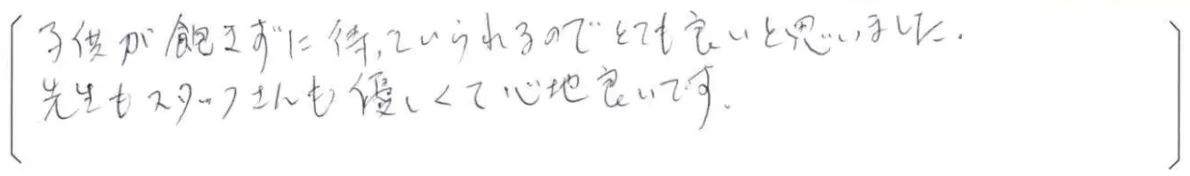 子供が飽きずに待っていられるのでとても良いと思いました.
先生もスタッフさんも優しくて心地良いです.